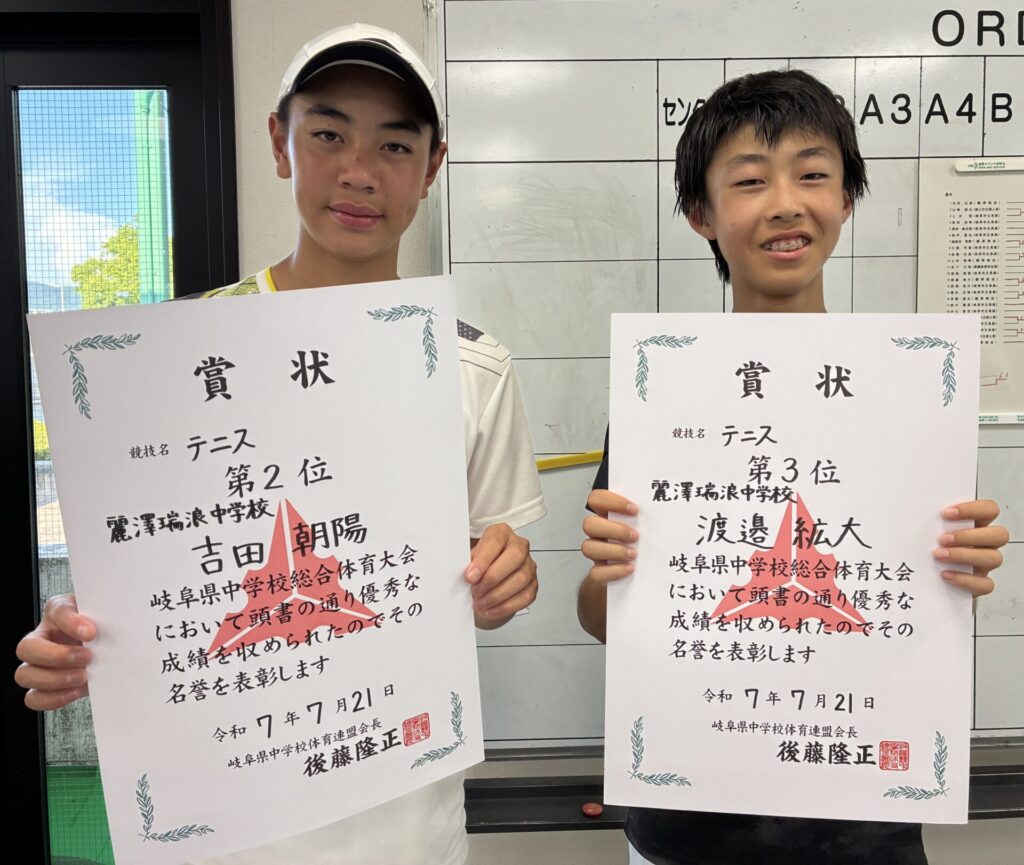 ORD
センタ
A3 A4 B
賞状
競技名 テニス
第2位
麗澤瑞浪中学校
吉田 朝陽
岐阜県中学校総合体育大会
において頭書の通り優秀な
成績を収められたのでその
名誉を表彰します
令和 7 年 7 月 21 日
岐阜県中学校体育連盟会長
後藤隆正
賞状
競技名 テニス
第3位
麗澤瑞浪中学校
渡邊 紘大
岐阜県中学校総合体育大会
において頭書の通り優秀な
成績を収められたのでその
名誉を表彰します
令和 7 年 7 月 21 日
岐阜県中学校体育連盟会長
後藤隆正